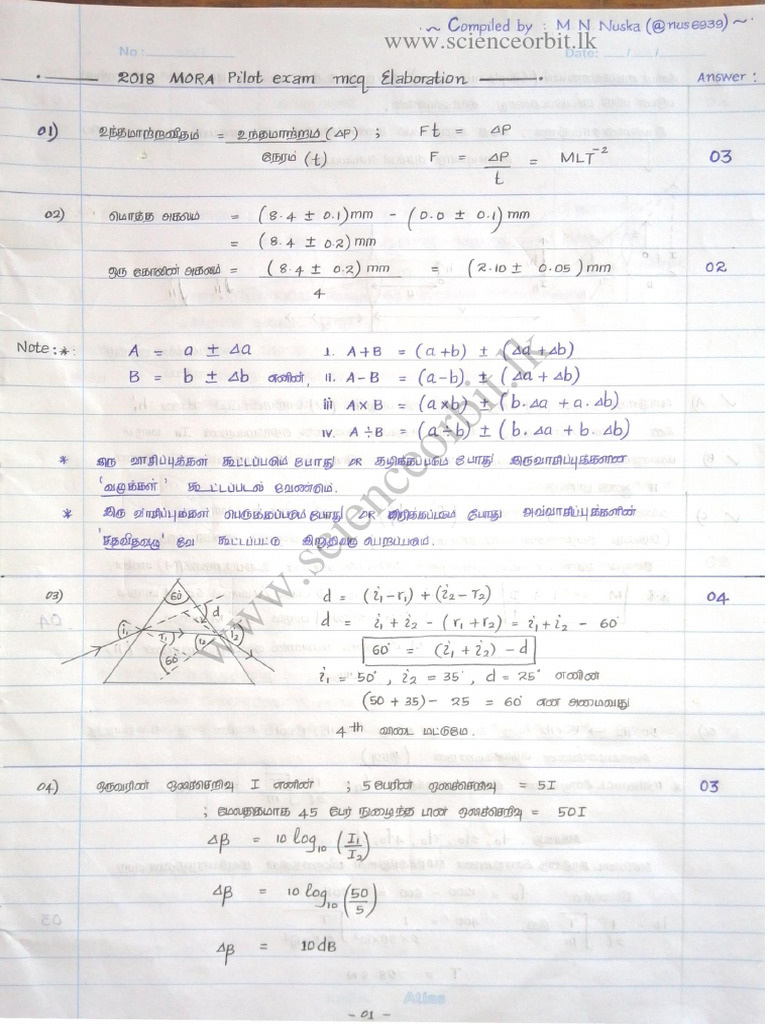 ~ Compiled by : M N Nuska (@nus6939) ~
www.scienceorbit.lk
No : Date: / /
2018 MORA Pilot exam mcq Elaboration Answer :
01) உந்தமாற்றவீதம் = உந்தமாற்றம் (ΔP) ; Ft = ΔP
நேரம் (t) F = ΔP/t = MLT⁻² 03
02) மொத்த அகலம் = (8.4 ± 0.1)mm - (0.0 ± 0.1)mm
= (8.4 ± 0.2)mm
ஒரு கோலின் அகலம் = (8.4 ± 0.2)mm / 4 = (2.10 ± 0.05)mm 02
Note :*: A = a ± Δa i. A+B = (a+b) ± (Δa + Δb)
B = b ± Δb எனின், ii. A-B = (a-b) ± (Δa + Δb)
iii A×B = (a×b) ± (b.Δa + a.Δb)
iv. A÷B = (a÷b) ± (b.Δa + b.Δb)
* இரு வாசிப்புக்கள் கூட்டப்படும் போது OR கழிக்கப்படும் போது இருவாசிப்புக்களின
'வழுக்கள்' கூட்டப்படல் வேண்டும்.
* இரு வாசிப்புக்கள் பெருக்கப்படும் போது OR பிரிக்கப்படும் போது அவ்வாசிப்புக்களின்
'சதவீதவழு' வே கூட்டப்பட்டு இறுதிவழு பெறப்படும்.
www.scienceorbit.lk
03) 60° d i₁ r₁ r₂ i₂ 60° d = (i₁-r₁) + (i₂-r₂) 04
d = i₁ + i₂ - (r₁ + r₂) = i₁ + i₂ - 60°
60° = (i₁ + i₂) - d
i₁ = 50°, i₂ = 35°, d = 25° எனின்
(50 + 35) - 25 = 60° என அமைவது
4th விடை மட்டுமே.
04) ஒருவரின் ஒலிச்செறிவு I எனின் ; 5 பேரின் ஒலிச்செறிவு = 5I 03
; மேலதிகமாக 45 பேர் நுழைந்த பின் ஒலிச்செறிவு = 50I
Δβ = 10 log₁₀ (I₁/I₂)
Δβ = 10 log₁₀ (50/5)
Δβ = 10dB
Atlas
- 01 -